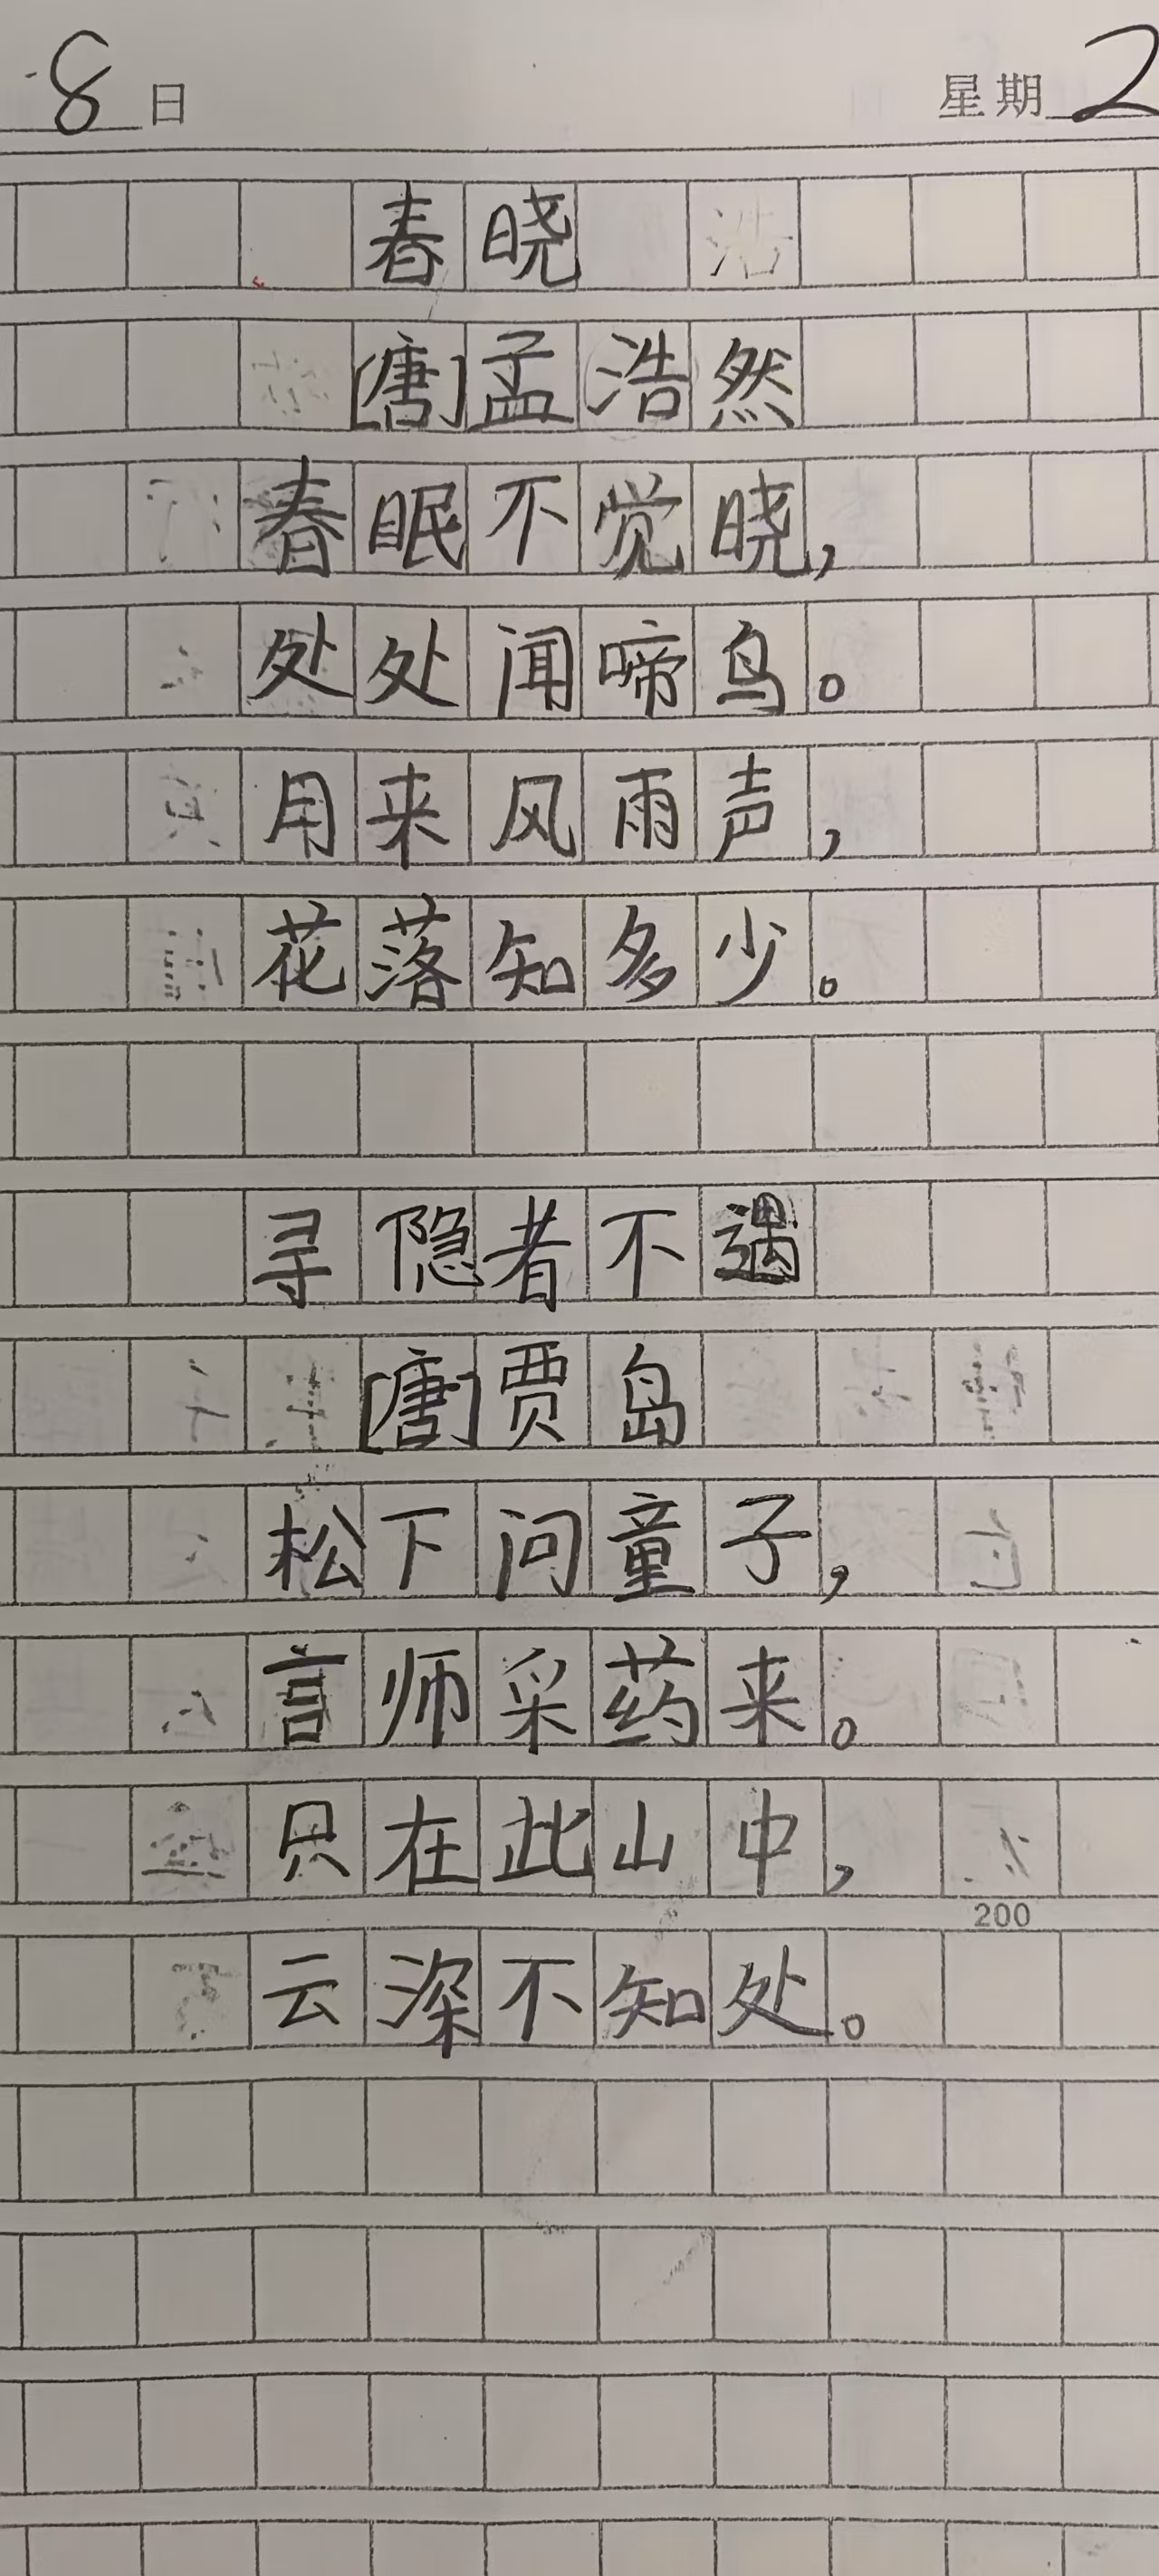 8日 星期2
春晓
[唐]孟浩然
春眠不觉晓,
处处闻啼鸟。
用来风雨声,
花落知多少。
寻隐者不遇
[唐]贾岛
松下问童子,
言师采药来。
只在此山中,
200
云深不知处。